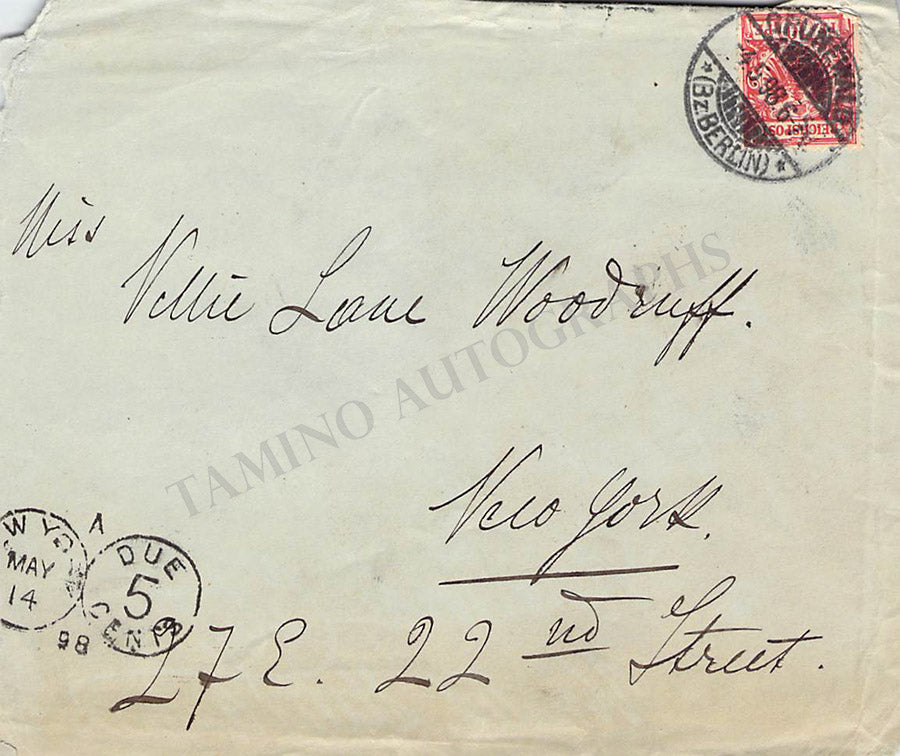 REICHSPOST
(Bz. BERLIN)
Miss
Nellie Lane Woodruff.
TAMINO AUTOGRAPHS
New York.
A
MAY
14
98
DUE
5
CENTS
27 E. 22nd Street.